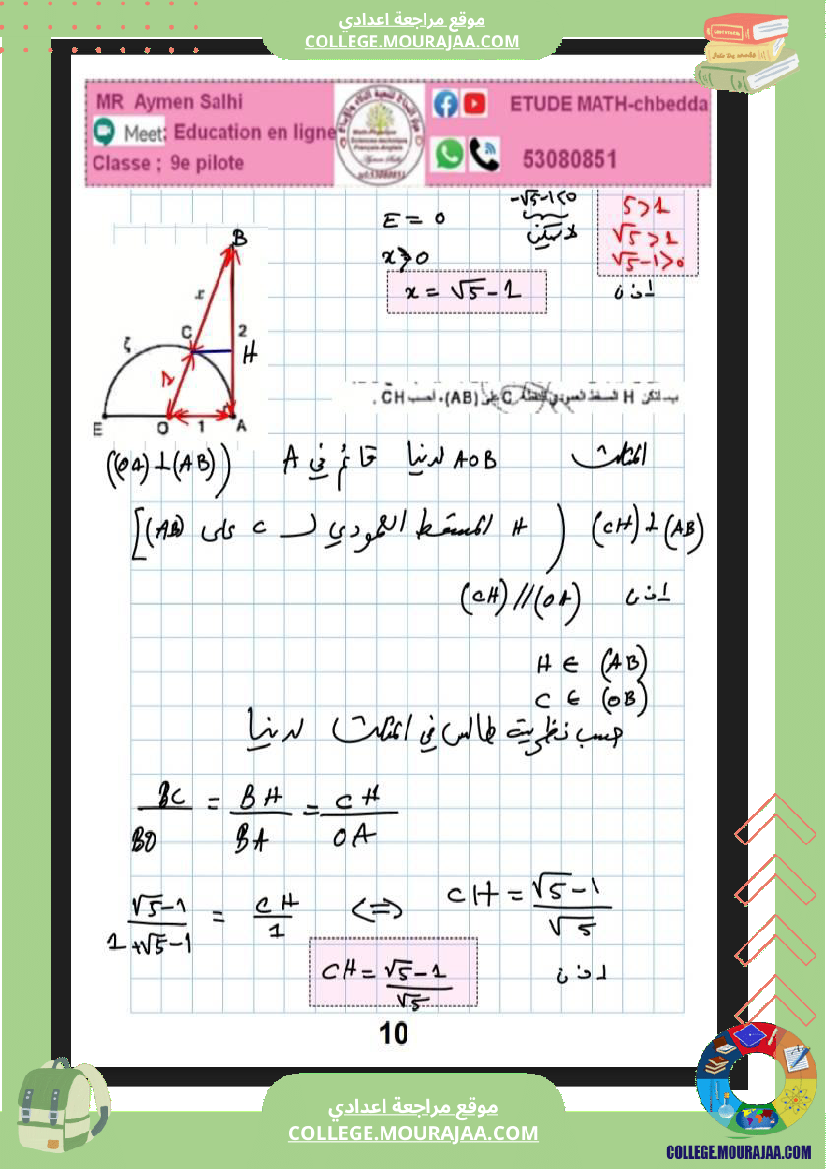 موقع مراجعة اعدادي
COLLEGE.MOURAJAA.COM
MR Aymen Salhi
Meet: Education en ligne
Classe ; 9e pilote
ETUDE MATH-chbedda
53080851
E = 0
-√5-1<0
لا يمكن
x ⩾ 0
x = √5 - 1
5>1
√5>1
√5-1>0
اذن
B
x
C
2
H
ζ
1
E O 1 A
ب- لتكن H المسقط العمودي للنقطة C على (AB)، احسب CH.
المثلث AOB لدينا قائم في A ((OA)⊥(AB))
(CH)⊥(AB) (H المسقط العمودي لـ C على (AB)]
اذن (CH)//(OA)
H ∈ (AB)
C ∈ (OB)
حسب نظرية طالس في المثلث لدينا
BC/BO = BH/BA = CH/OA
√5-1/1+√5-1 = CH/1 ⇔ CH = √5-1/√5
اذن CH = √5-1/√5
10
موقع مراجعة اعدادي
COLLEGE.MOURAJAA.COM
COLLEGE.MOURAJAA.COM